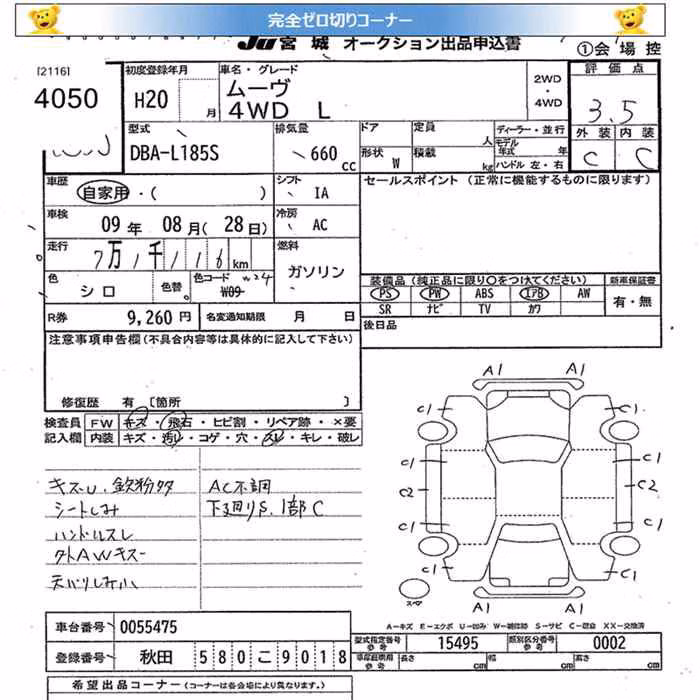 完全ゼロ切りコーナー
JU宮城 オークション出品申込書 ①会場控
[2116]
4050
初度登録年月
H20 月
車名・グレード
ムーヴ
4WD L
2WD
・
4WD
評価点
3.5
外装 内装
C C
型式
DBA-L185S
排気量
660
cc
ドア 定員 人
形状 W 積載 kg
ディーラー・並行
モデル年式 年
ハンドル 左・右
車歴
自家用・( )
シフト
IA
セールスポイント (正常に機能するものに限ります)
車検
09年 08月(28日)
冷房
AC
走行
7万1千116km
燃料
ガソリン
色
シロ
色替
色コード W24
W09
装備品(純正品に限り○をつけてください)
PS PW ABS エアB AW
SR ナビ TV カワ
新車保証書
有・無
R券 9,260円
名変通知期限 月 日
後日品
注意事項申告欄(不具合内容等は具体的に記入して下さい)
修復歴 有 [箇所 ]
検査員 FW キズ・飛石・ヒビ割・リペア跡・×要
記入欄 内装 キズ・汚レ・コゲ・穴・スレ・キレ・破レ
キズU、鉄粉多
シートしみ
ハンドルスレ
タトAWキズー
天バリしみ小
AC不調
下廻りS、1部C
A1 A1
C1 C1
C1 C1
C2 C2
C1 C1
C1 C1
A1 A1
スペア
A-キズ E-エクボ U-凹み W-補修跡 S-サビ C-腐食 XX-交換済
車台番号 0055475
登録番号 秋田 580こ9018
型式指定番号 参考 15495 類別区分番号 参考 0002
長さ cm 幅 cm 高さ cm
希望出品コーナー(コーナーは各会場により異なります。)